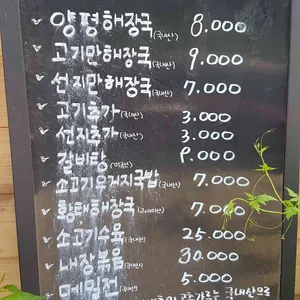 양평해장국(국내산) 8.000
고기만해장국(국내산) 9.000
선지만해장국(국내산) 7.000
고기추가(국내산) 3.000
선지추가(국내산) 3.000
갈비탕(미국산) 9.000
소고기우거지국밥(국내산) 7.000
황태해장국(러시아산) 7.000
소고기수육(국내산) 25.000
내장볶음(국내산) 30.000
메밀전(국내산) 5.000
고춧가루는 국내산으로